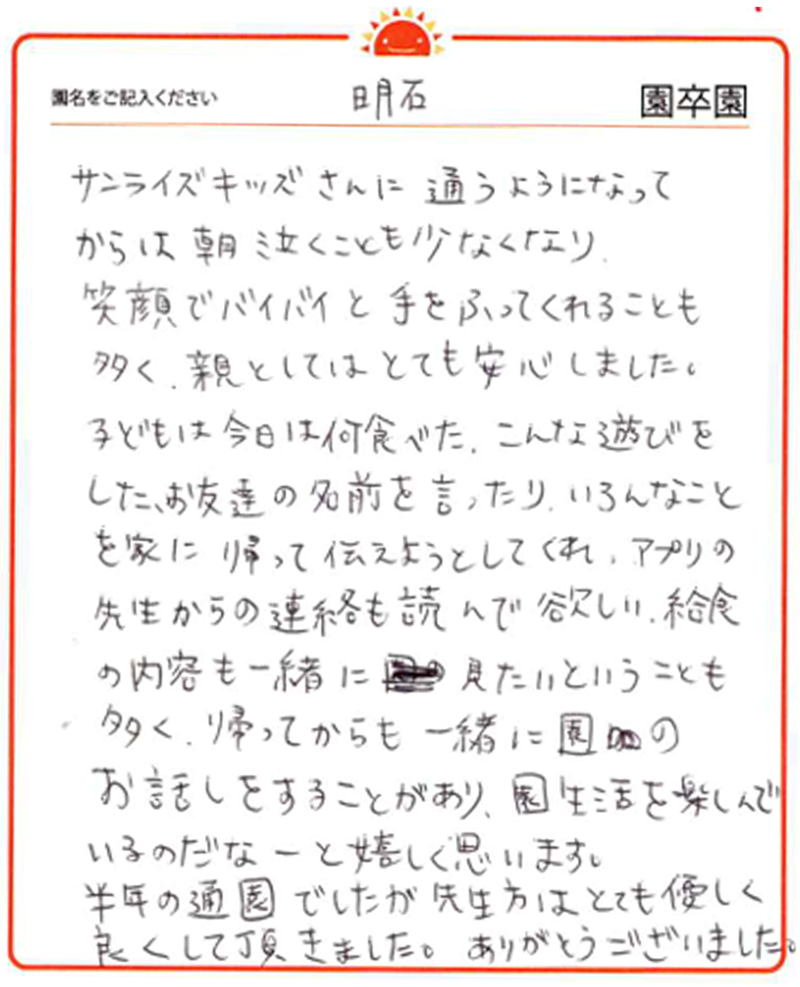 園名をご記入ください 明石 園卒園
サンライズキッズさんに通うようになって
からは朝泣くことも少なくなり、
笑顔でバイバイと手をふってくれることも
多く、親としてはとても安心しました。
子どもは今日は何食べた、こんな遊びを
した、お友達の名前を言ったり、いろんなこと
を家に帰って伝えようとしてくれ、アプリの
先生からの連絡も読んで欲しい、給食
の内容も一緒に見たいということも
多く、帰ってからも一緒に園の
お話しをすることがあり、園生活を楽しんで
いるのだなーと嬉しく思います。
半年の通園でしたが先生方はとても優しく
良くして頂きました。ありがとうございました。